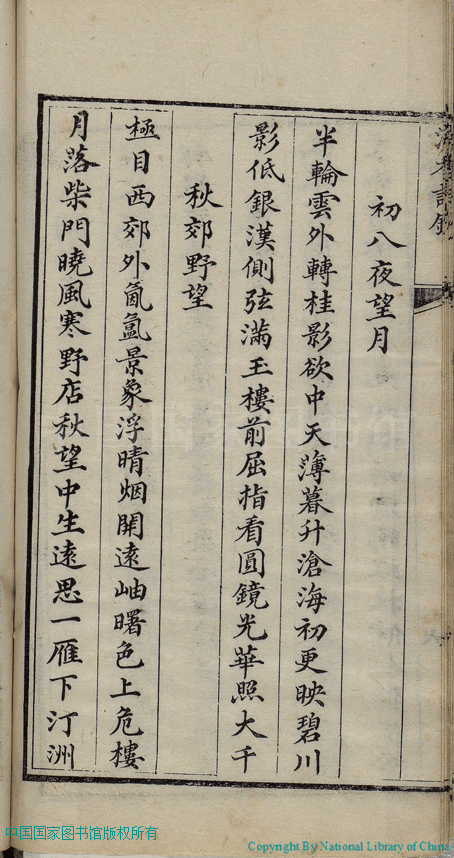 初八夜望月
半輪雲外轉桂影欲中天薄暮升滄海初更映碧川
影低銀漢側弦滿玉樓前屈指看圓鏡光華照大千
秋郊野望
極目西郊外氤氳景象浮晴烟開遠岫曙色上危樓
月落柴門曉風寒野店秋望中生遠思一雁下汀洲
中国国家图书馆版权所有
Copyright By National Library of China